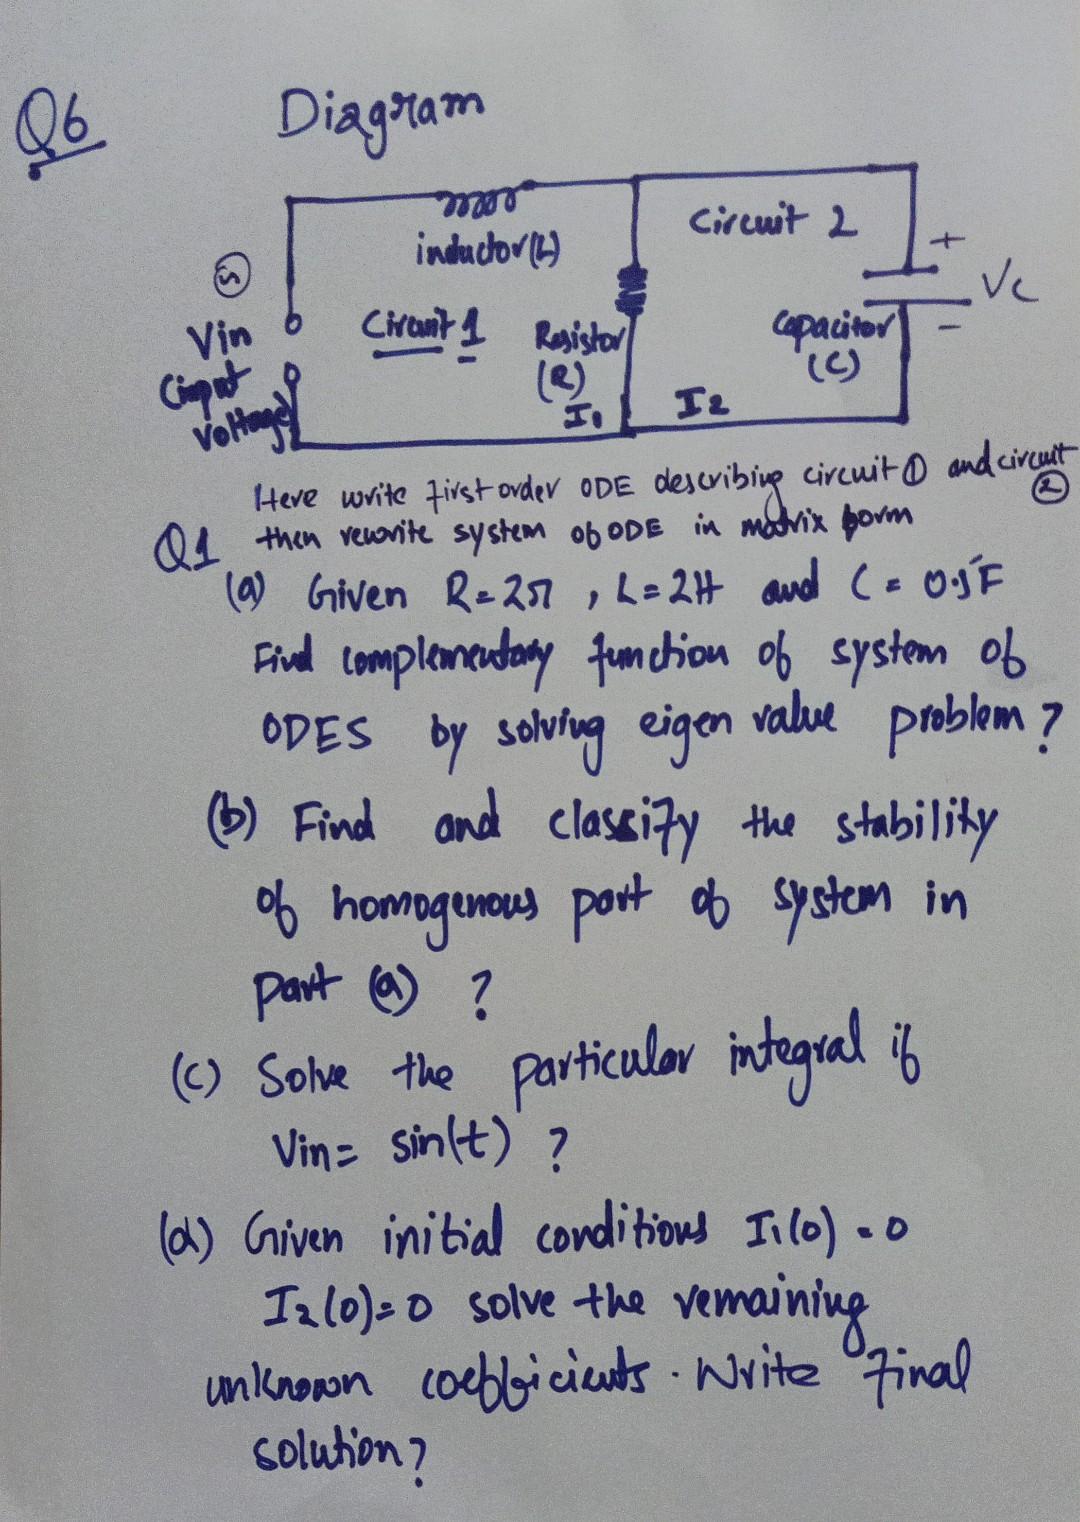 Q6
Diagram
inductor(L)
Circuit 2
+
Vc
-
Vin
(input
voltage)
Circuit 1
Resistor
(R)
I1
I2
capacitor
(C)
Here write first order ODE describing circuit ① and circuit ②
Q1 then rewrite system of ODE in matrix form
(a) Given R=2Ω , L=2H and C = 0.5F
Find complementary function of system of
ODES by solving eigen value problem ?
(b) Find and classify the stability
of homogenous part of system in
part (a) ?
(c) Solve the particular integral if
Vin= sin(t) ?
(d) Given initial conditions I1(0) = 0
I2(0)=0 solve the remaining
unknown coefficients . Write final
solution?